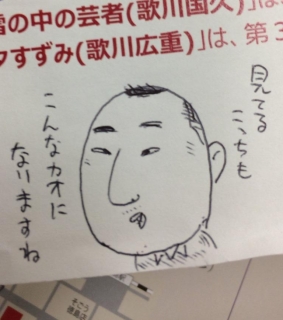 雪の中の芸者(歌川国久)」は
夕すずみ(歌川広重)」は、第3
見てる
こっちも
こんなカオに
なりますね